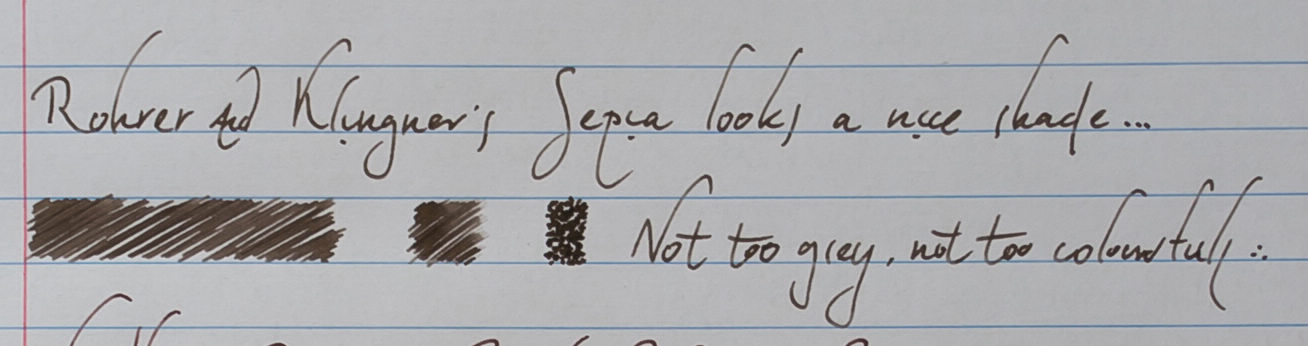 Rohrer and Klingner's Sepia looks a nice shade...
Not too grey, not too colourful :.